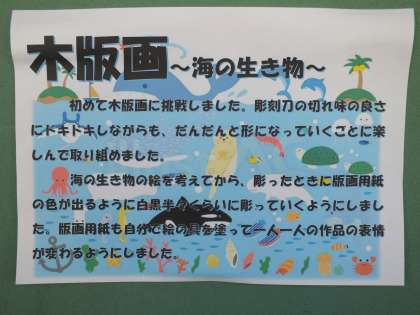 木版画～海の生き物～
初めて木版画に挑戦しました。彫刻刀の切れ味の良さ
にドキドキしながらも、だんだんと形になっていくことに楽
しんで取り組めました。
海の生き物の絵を考えてから、彫ったときに版画用紙
の色が出るように白黒半々くらいに彫っていくようにしまし
た。版画用紙も自分で絵の具を塗って一人一人の作品の表情
が変わるようにしました。